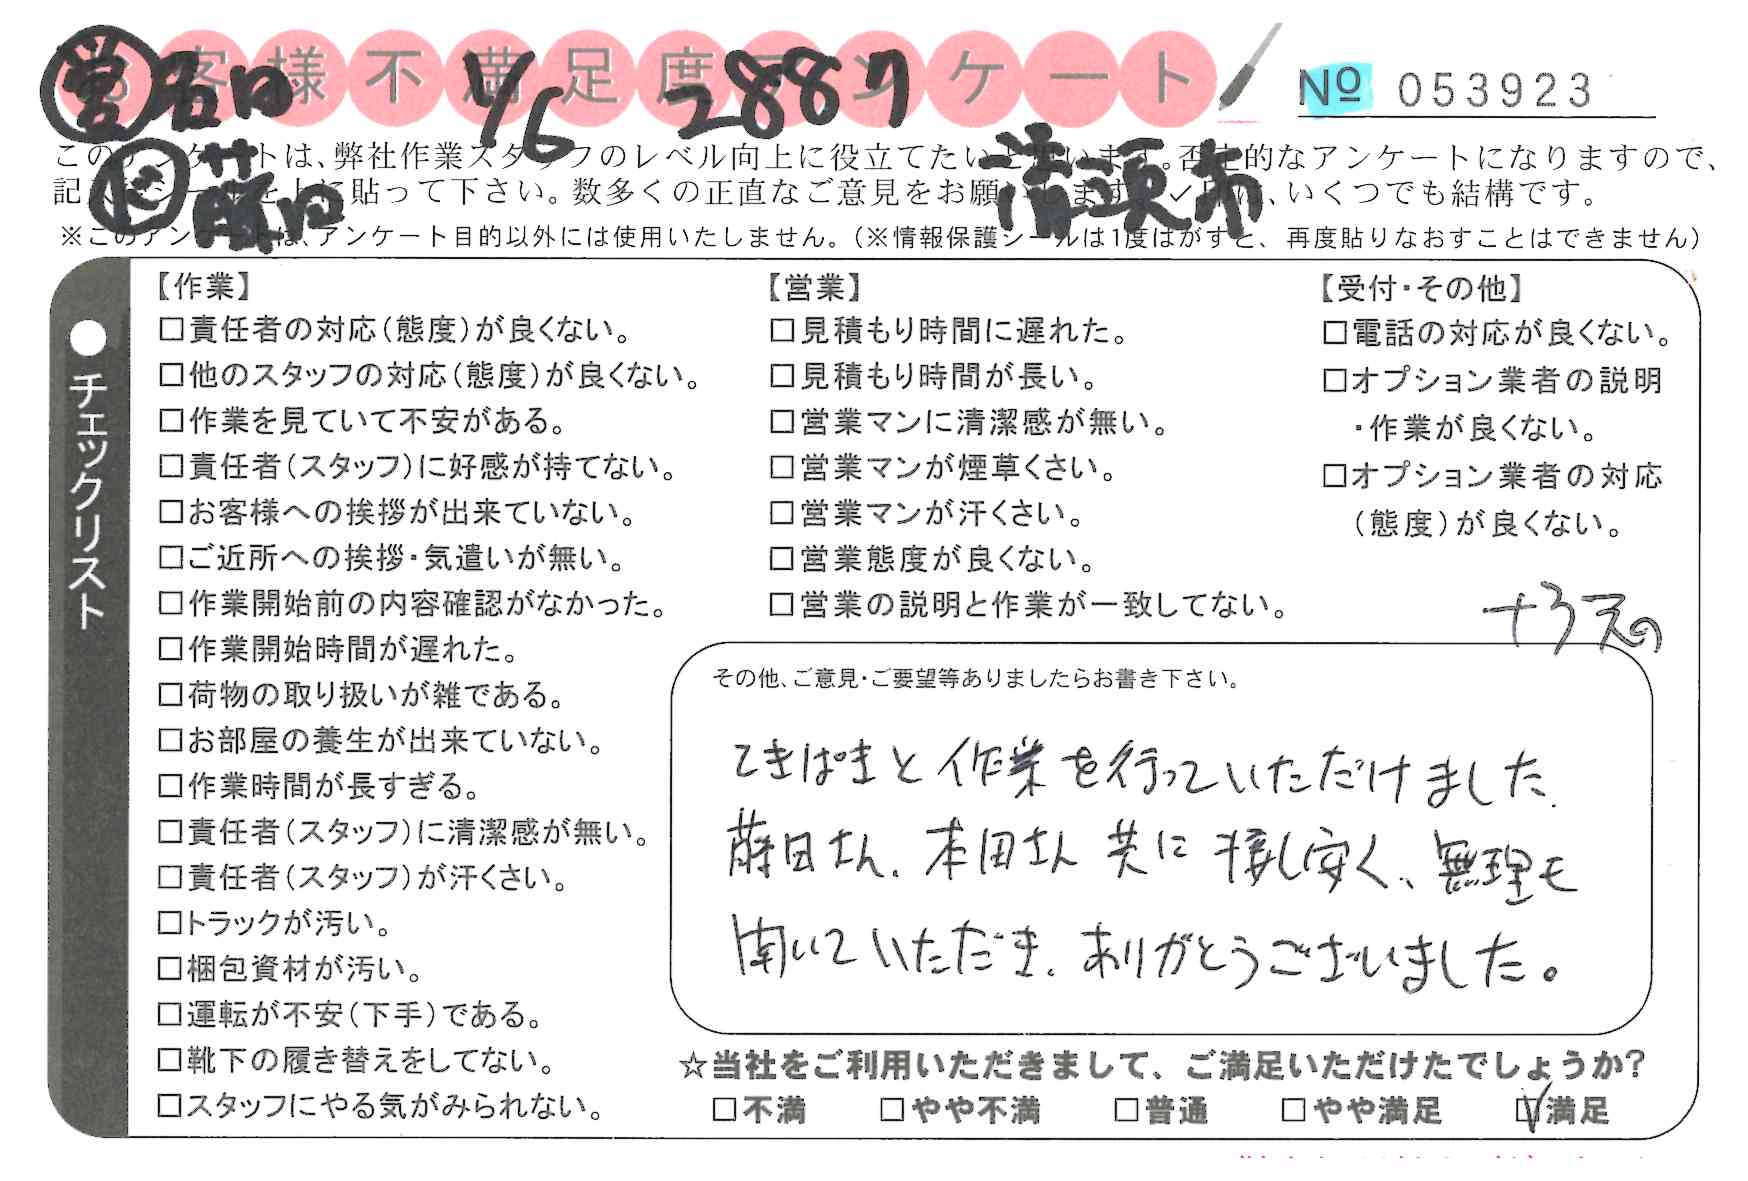 お客様不満足度アンケート
№ 053923
1/6 2887
このアンケートは、弊社作業スタッフのレベル向上に役立てたいと思います。否定的なアンケートになりますので、
記入後シールを上に貼って下さい。数多くの正直なご意見をお願いします。✓印は、いくつでも結構です。
※このアンケートは、アンケート目的以外には使用いたしません。(※情報保護シールは1度はがすと、再度貼りなおすことはできません)
●チェックリスト
【作業】
□責任者の対応(態度)が良くない。
□他のスタッフの対応(態度)が良くない。
□作業を見ていて不安がある。
□責任者(スタッフ)に好感が持てない。
□お客様への挨拶が出来ていない。
□ご近所への挨拶・気遣いが無い。
□作業開始前の内容確認がなかった。
□作業開始時間が遅れた。
□荷物の取り扱いが雑である。
□お部屋の養生が出来ていない。
□作業時間が長すぎる。
□責任者(スタッフ)に清潔感が無い。
□責任者(スタッフ)が汗くさい。
□トラックが汚い。
□梱包資材が汚い。
□運転が不安(下手)である。
□靴下の履き替えをしてない。
□スタッフにやる気がみられない。
【営業】
□見積もり時間に遅れた。
□見積もり時間が長い。
□営業マンに清潔感が無い。
□営業マンが煙草くさい。
□営業マンが汗くさい。
□営業態度が良くない。
□営業の説明と作業が一致してない。
【受付・その他】
□電話の対応が良くない。
□オプション業者の説明
・作業が良くない。
□オプション業者の対応
(態度)が良くない。
その他、ご意見・ご要望等ありましたらお書き下さい。
てきぱきと作業を行っていただけました.
蒔田さん、本田さん共に接し安く、無理も
聞いていただき、ありがとうございました。
☆当社をご利用いただきまして、ご満足いただけたでしょうか?
□不満 □やや不満 □普通 □やや満足 ☑満足